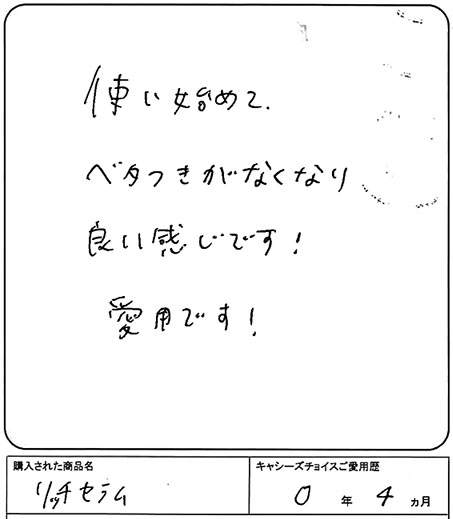 使い始めて、
ベタつきがなくなり
良い感じです!
愛用です!
購入された商品名
キャシーズチョイスご愛用歴
リッチセラム
0 年 4 ヵ月